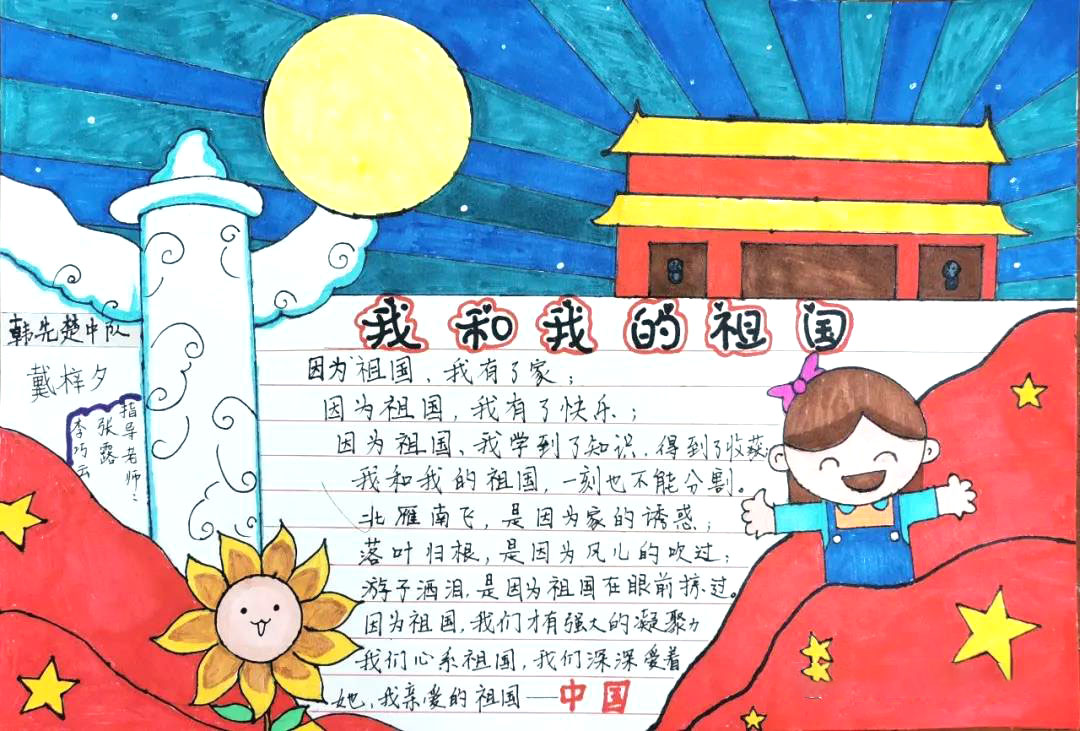 我和我的祖国
韩先楚中队
戴梓夕
指导老师:
张露
李巧云
因为祖国、我有了家；
因为祖国，我有了快乐；
因为祖国、我学到了知识、得到了收获；
我和我的祖国，一刻也不能分割。
北雁南飞，是因为家的诱惑；
落叶归根，是因为风儿的吹过；
游子洒泪，是因为祖国在眼前掠过。
因为祖国，我们才有强大的凝聚力
我们心系祖国，我们深深爱着
她，我亲爱的祖国——中国